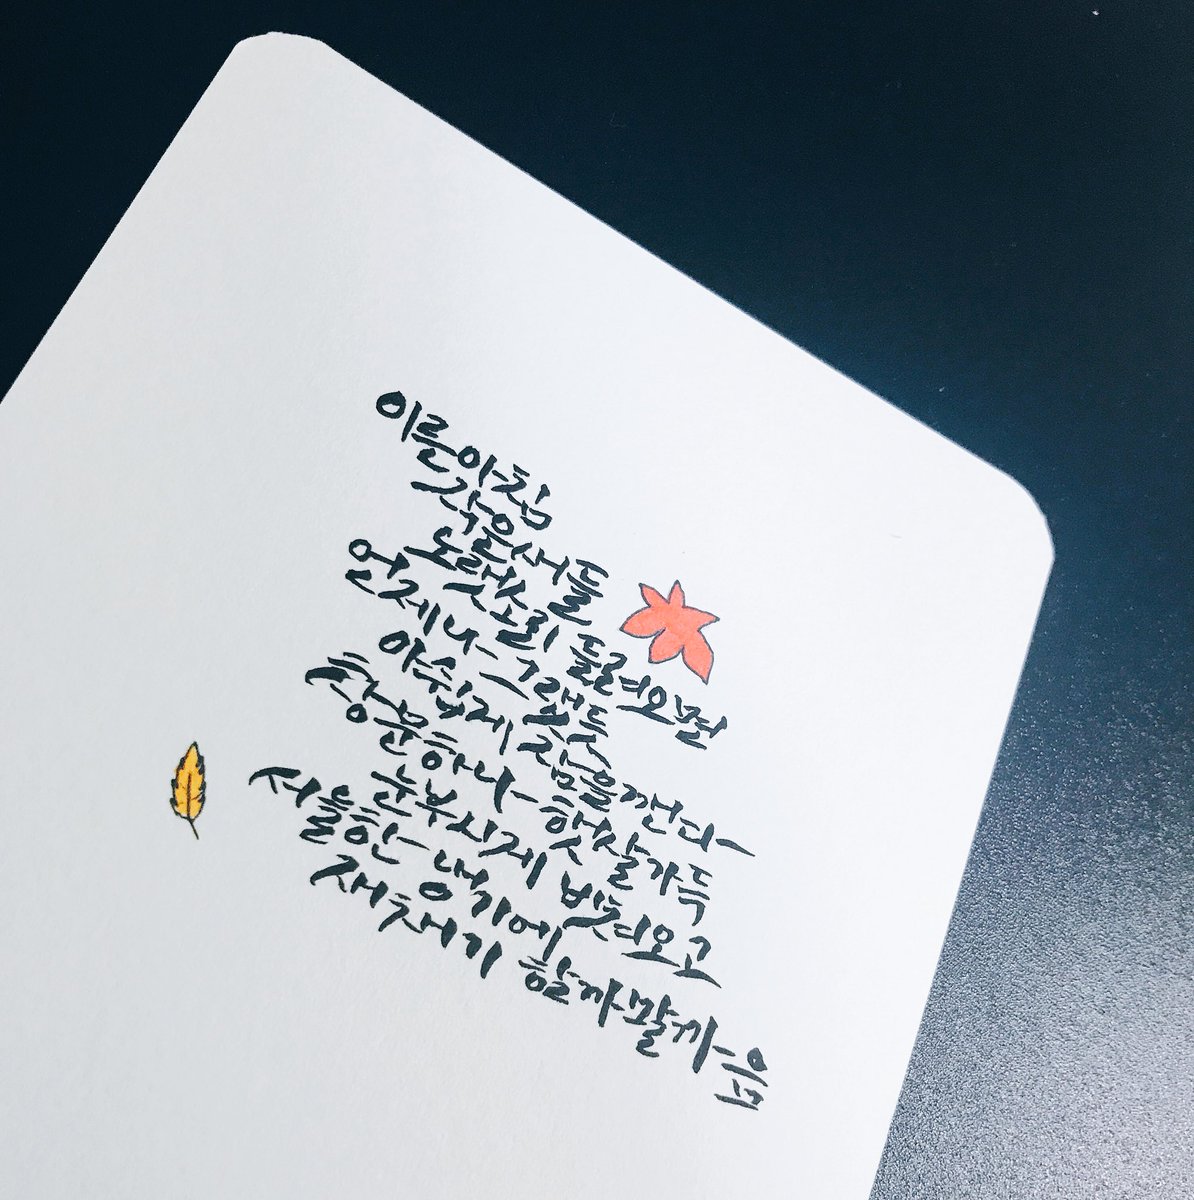 이른아침
작은새들
노랫소리 들려오면
언제나 그랬듯
아쉽게 잠을깬다
창문하나 햇살가득
눈부시게 비쳐오고
서늘한 냉기에
재채기 할까말까 음